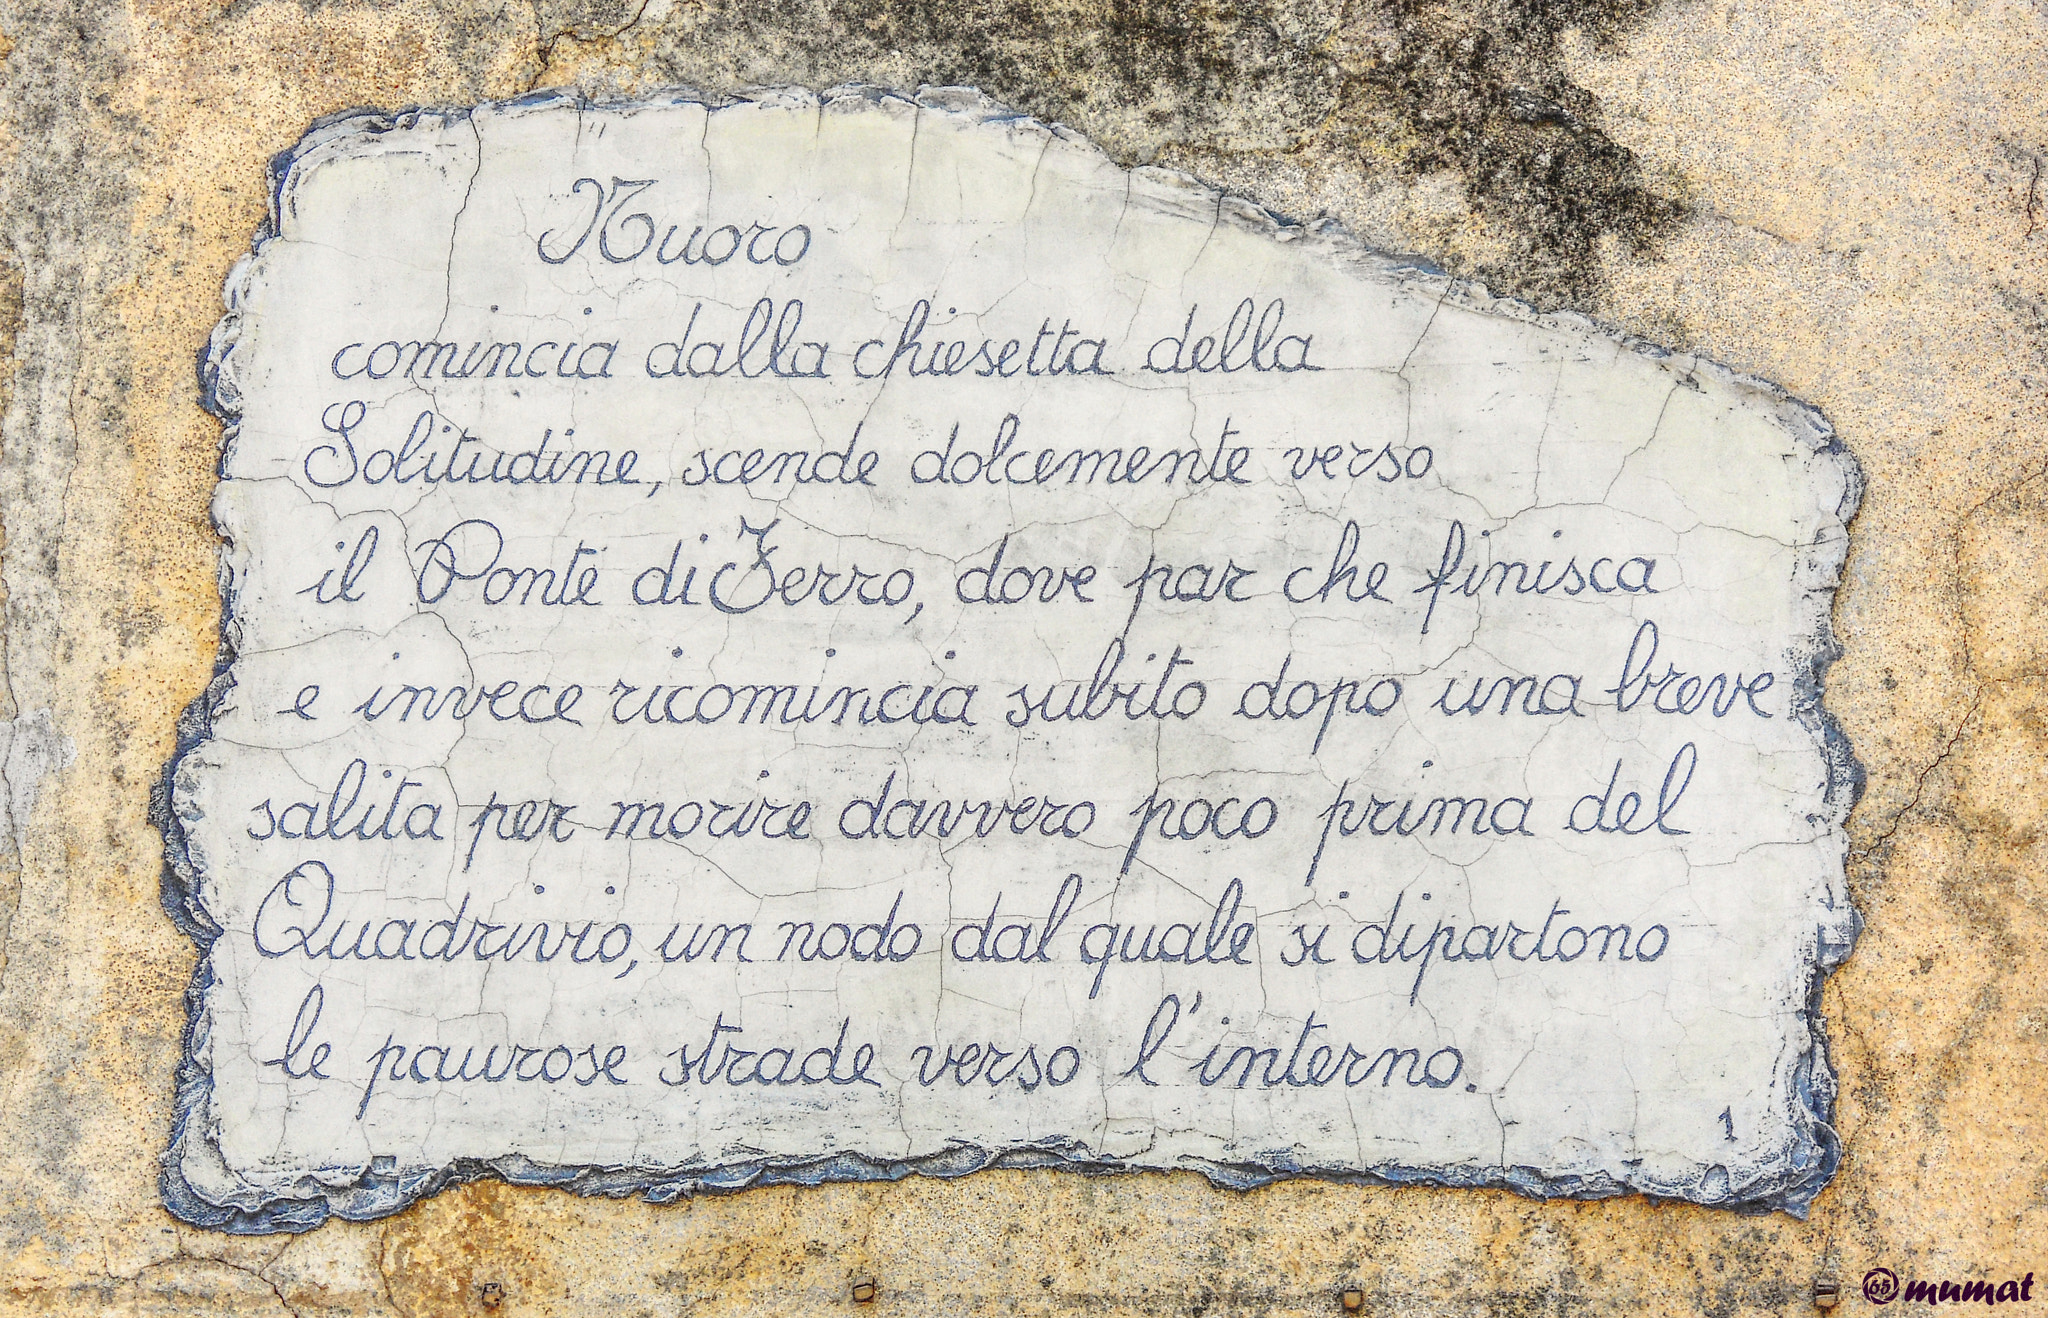 Nuoro
comincia dalla chiesetta della
Solitudine, scende dolcemente verso
il Ponte di Ferro, dove par che finisca
e invece ricomincia subito dopo una breve
salita per morire davvero poco prima del
Quadrivio, un nodo dal quale si dipartono
le paurose strade verso l'interno.
1
65 mumat